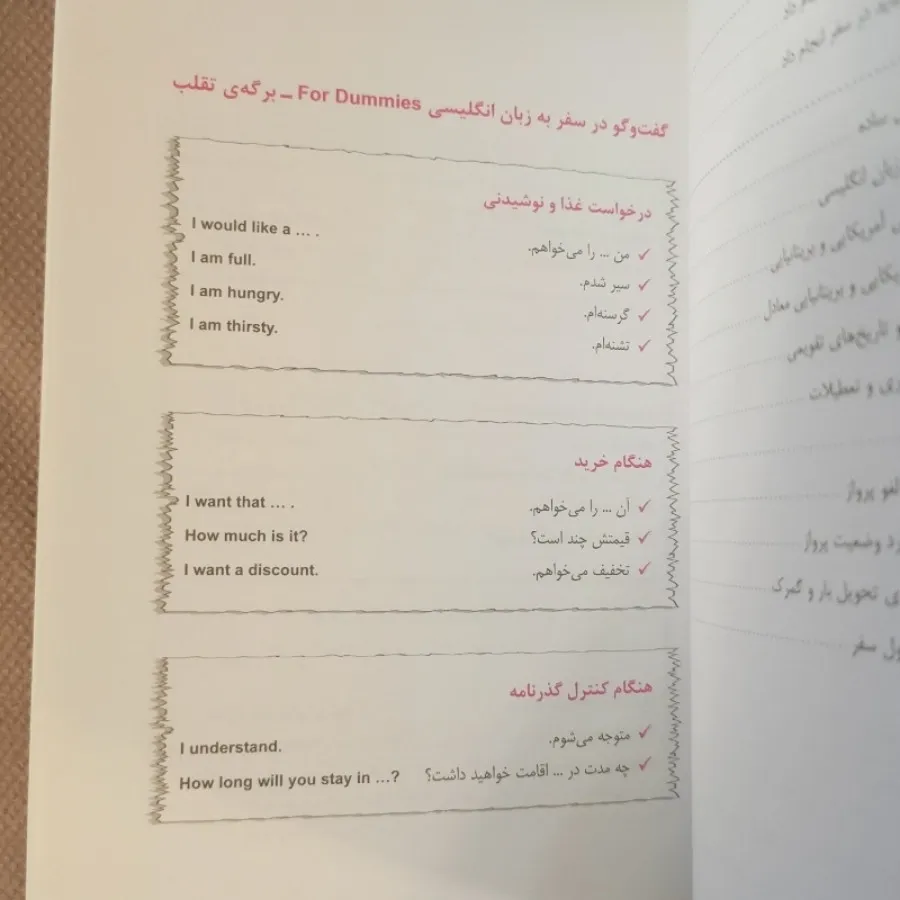 گفت‌وگو در سفر به زبان انگلیسی For Dummies ــ برگه‌ی تقلب
درخواست غذا و نوشیدنی
✓ من ... را می‌خواهم. I would like a ... .
✓ سیر شدم. I am full.
✓ گرسنه‌ام. I am hungry.
✓ تشنه‌ام. I am thirsty.
هنگام خرید
✓ آن ... را می‌خواهم. I want that ... .
✓ قیمتش چند است؟ How much is it?
✓ تخفیف می‌خواهم. I want a discount.
هنگام کنترل گذرنامه
✓ متوجه می‌شوم. I understand.
✓ چه مدت در ... اقامت خواهید داشت؟ How long will you stay in ...?
در سفر انجام داد
ساده
زبان انگلیسی
آمریکایی و بریتانیایی
و بریتانیایی معادل
تاریخ‌های تقویمی
و تعطیلات
لغو پرواز
وضعیت پرواز
تحویل بار و گمرک
سفر